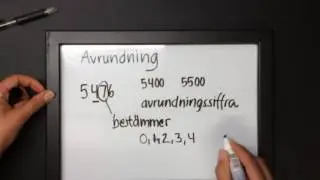 Avrundning
5476 5400 5500
avrundningssiffra
bestämmer
0,1,2,3,4